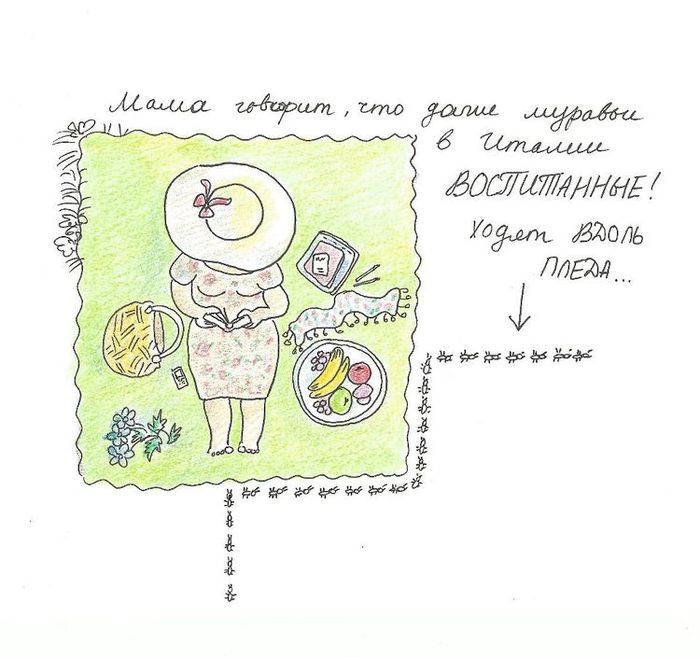 Мама говорит, что даже муравьи
в Италии
ВОСПИТАННЫЕ!
Ходят ВДОЛЬ
ПЛЕДА...